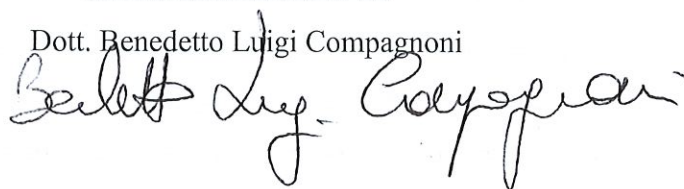 Dott. Benedetto Luigi Compagnoni
Benedetto Luig. Compagnoni